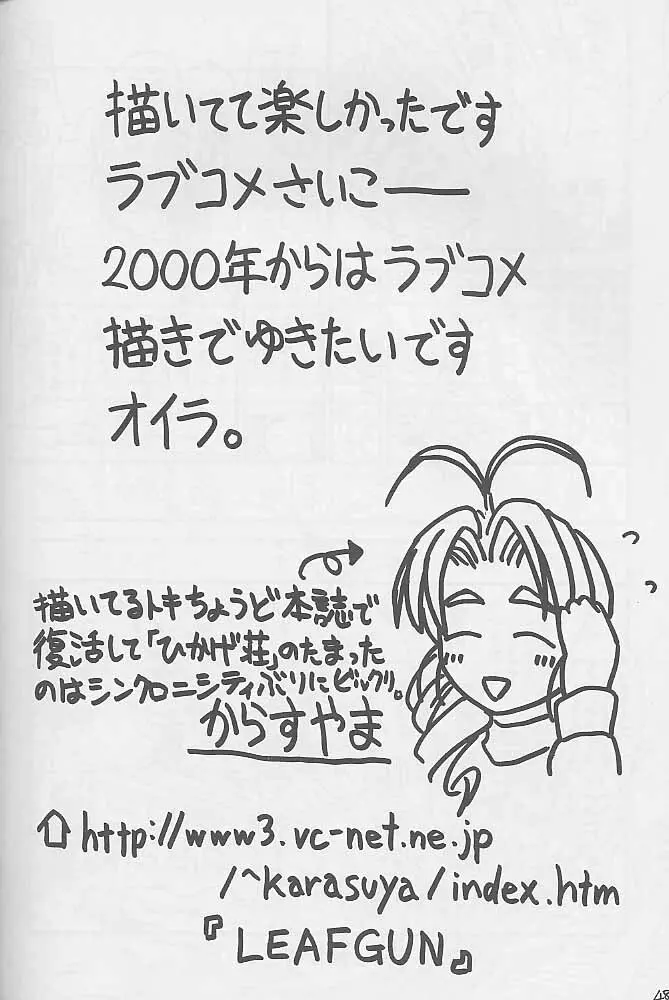 描いてて楽しかったです
ラブコメさいこー
2000年からはラブコメ
描きでゆきたいです
オイラ。
描いてるトキちょうど本誌で
復活して「ひかげ荘」のたまった
のはシンクロニシティぶりにビックリ。
からすやま
http://www3.vc-net.ne.jp
/~karasuya/index.htm
『LEAFGUN』
48